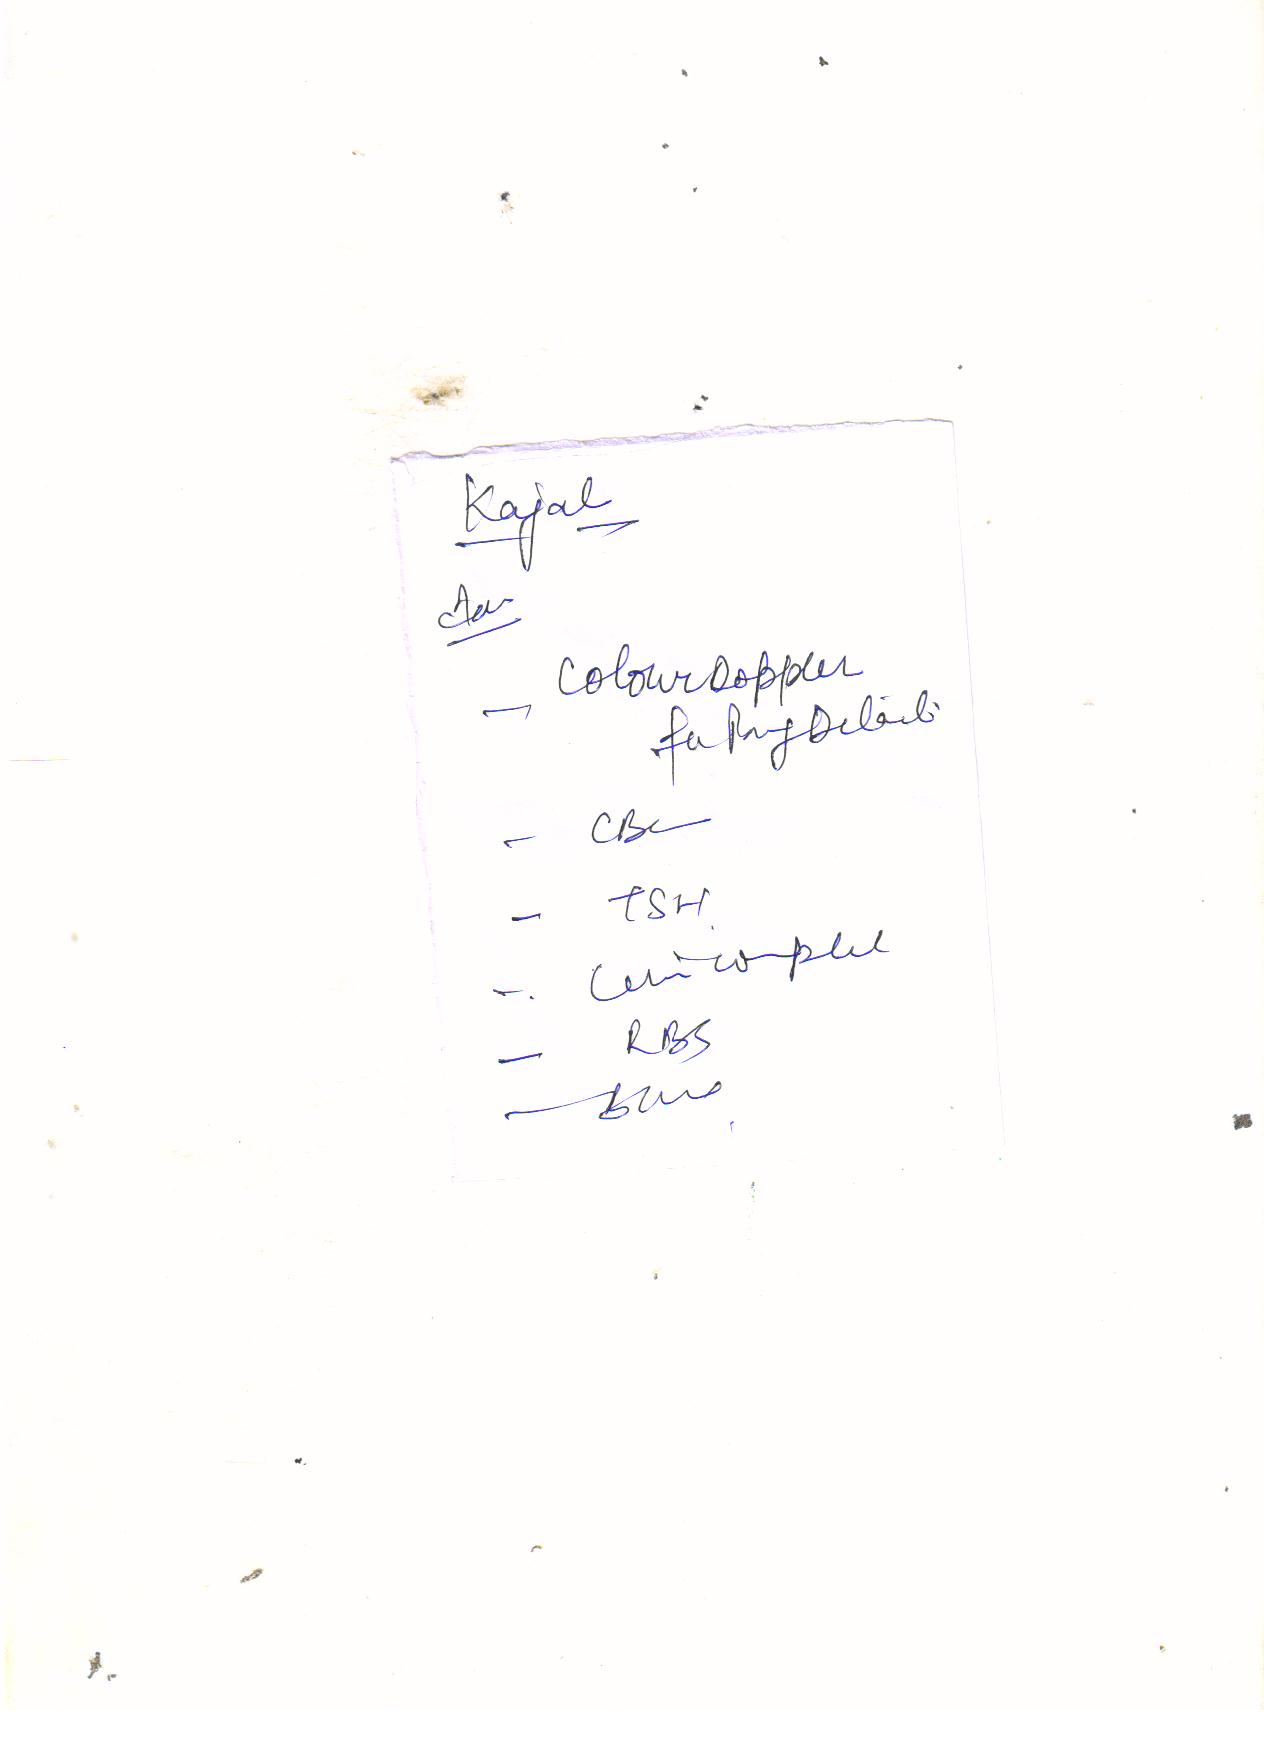 Kajal
Adv
- Colour Doppler
for Preg Details
- CBC
- TSH
- Urine complete
- RBS